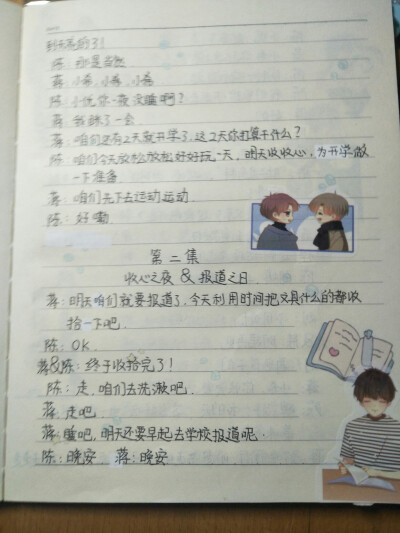 到天亮的了！
陈：那是当然
蒋：小陈，小陈，小陈
陈：小忱你一夜没睡啊？
蒋：我睡了一会
蒋：咱们还有2天就开学了，这2天你打算干什么？
陈：咱们今天放松放松好好玩一天，明天收收心，为开学做
一下准备
蒋：咱们先下去运动运动
陈：好嘞
第二集
收心之夜&报道之日
蒋：明天咱们就要报道了，今天利用时间把文具什么的都收
拾一下吧
陈：OK
蒋&陈：终于收拾完了！
陈：走，咱们去洗漱吧
蒋：走吧
蒋：睡吧，明天还要早起去学校报道呢
陈：晚安 蒋：晚安